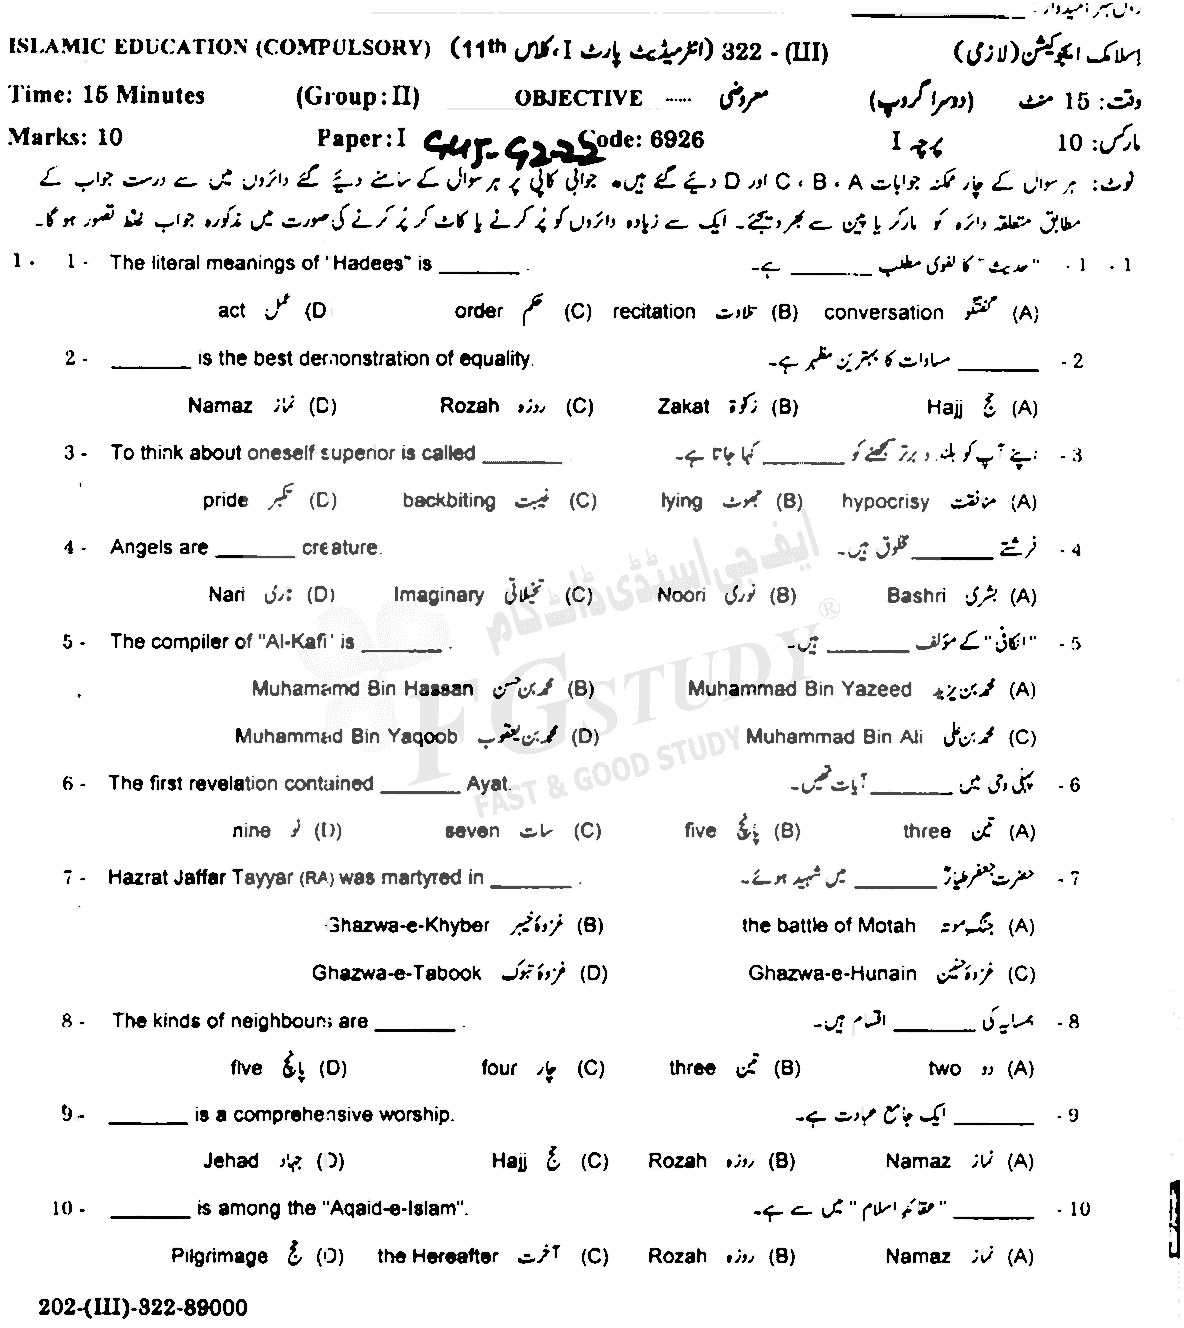 رول نمبر امیدوار: ____________
ISLAMIC EDUCATION (COMPULSORY) (انٹرمیڈیٹ پارٹ I، کلاس 11th) 322 - (III) اسلامک ایجوکیشن (لازمی)
Time: 15 Minutes (Group : II) OBJECTIVE ----- معروضی (دوسرا گروپ) وقت: 15 منٹ
Marks: 10 Paper : I Code: 6926 پرچہ I مارکس: 10
GUJ-G2-22
نوٹ: ہر سوال کے چار ممکنہ جوابات A ، B ، C اور D دیئے گئے ہیں۔ جوابی کاپی پر ہر سوال کے سامنے دیئے گئے دائروں میں سے درست جواب کے
مطابق متعلقہ دائرہ کو مارکر یا پین سے بھر دیجئے۔ ایک سے زیادہ دائروں کو پُر کرنے یا کاٹ کر پُر کرنے کی صورت میں مذکورہ جواب غلط تصور ہو گا۔
1 . 1 - The literal meanings of "Hadees" is ________ . "حدیث" کا لغوی مطلب ________ ہے۔ - 1 . 1
act عمل (D order حکم (C) recitation تلاوت (B) conversation گفتگو (A)
2 - ________ is the best demonstration of equality. ________ مساوات کا بہترین مظہر ہے۔ - 2
Namaz نماز (D) Rozah روزہ (C) Zakat زکوٰۃ (B) Hajj حج (A)
3 - To think about oneself superior is called ________ اپنے آپ کو بلند و برتر سمجھنے کو ________ کہا جاتا ہے۔ - 3
pride تکبر (D) backbiting غیبت (C) lying جھوٹ (B) hypocrisy منافقت (A)
4 - Angels are ________ creature. فرشتے ________ مخلوق ہیں۔ - 4
Nari ناری (D) Imaginary تخیلاتی (C) Noori نوری (B) Bashri بشری (A)
5 - The compiler of "Al-Kafi" is ________ . "الکافی" کے مؤلف ________ ہیں۔ - 5
Muhamamd Bin Hassan محمد بن حسن (B) Muhammad Bin Yazeed محمد بن یزید (A)
Muhammad Bin Yaqoob محمد بن یعقوب (D) Muhammad Bin Ali محمد بن علی (C)
6 - The first revelation contained ________ Ayat. پہلی وحی میں ________ آیات تھیں۔ - 6
nine نو (D) seven سات (C) five پانچ (B) three تین (A)
7 - Hazrat Jaffar Tayyar (RA) was martyred in ________ . حضرت جعفر طیارؓ ________ میں شہید ہوئے۔ - 7
Ghazwa-e-Khyber غزوۂ خیبر (B) the battle of Motah جنگ موتہ (A)
Ghazwa-e-Tabook غزوۂ تبوک (D) Ghazwa-e-Hunain غزوۂ حنین (C)
8 - The kinds of neighbours are ________ . ہمسایہ کی ________ اقسام ہیں۔ - 8
five پانچ (D) four چار (C) three تین (B) two دو (A)
9 - ________ is a comprehensive worship. ________ ایک جامع عبادت ہے۔ - 9
Jehad جہاد (D) Hajj حج (C) Rozah روزہ (B) Namaz نماز (A)
10 - ________ is among the "Aqaid-e-Islam". ________ "عقائدِ اسلام" میں سے ہے۔ - 10
Pilgrimage حج (D) the Hereafter آخرت (C) Rozah روزہ (B) Namaz نماز (A)
202-(III)-322-89000
ایف جی اسٹڈی ڈاٹ کام
FG STUDY ®
FAST & GOOD STUDY